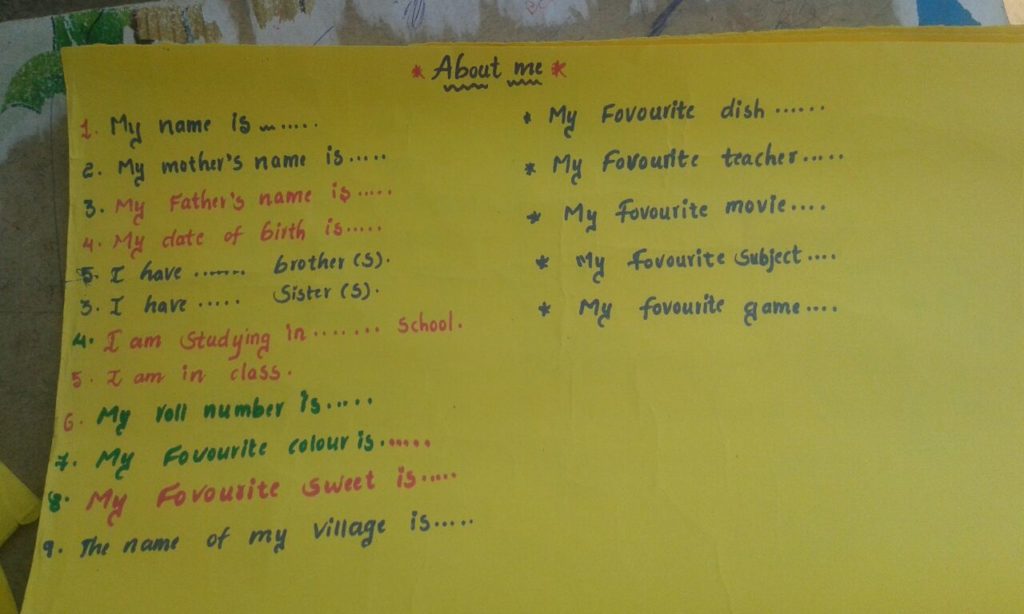 * About me *
1. My name is ........
2. My mother's name is.....
3. My Father's name is.....
4. My date of birth is.....
5. I have ....... brother(s).
3. I have ..... Sister(s).
4. I am studying in....... School.
5. I am in class.
6. My roll number is.....
7. My Fovourite colour is......
8. My Fovourite sweet is.....
9. The name of my village is.....
* My Fovourite dish ......
* My Fovourite teacher.....
* My fovourite movie....
* My fovourite Subject....
* My fovourite game....